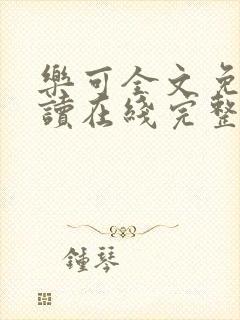 樂可全文免
讀在綫完整
鍾琴